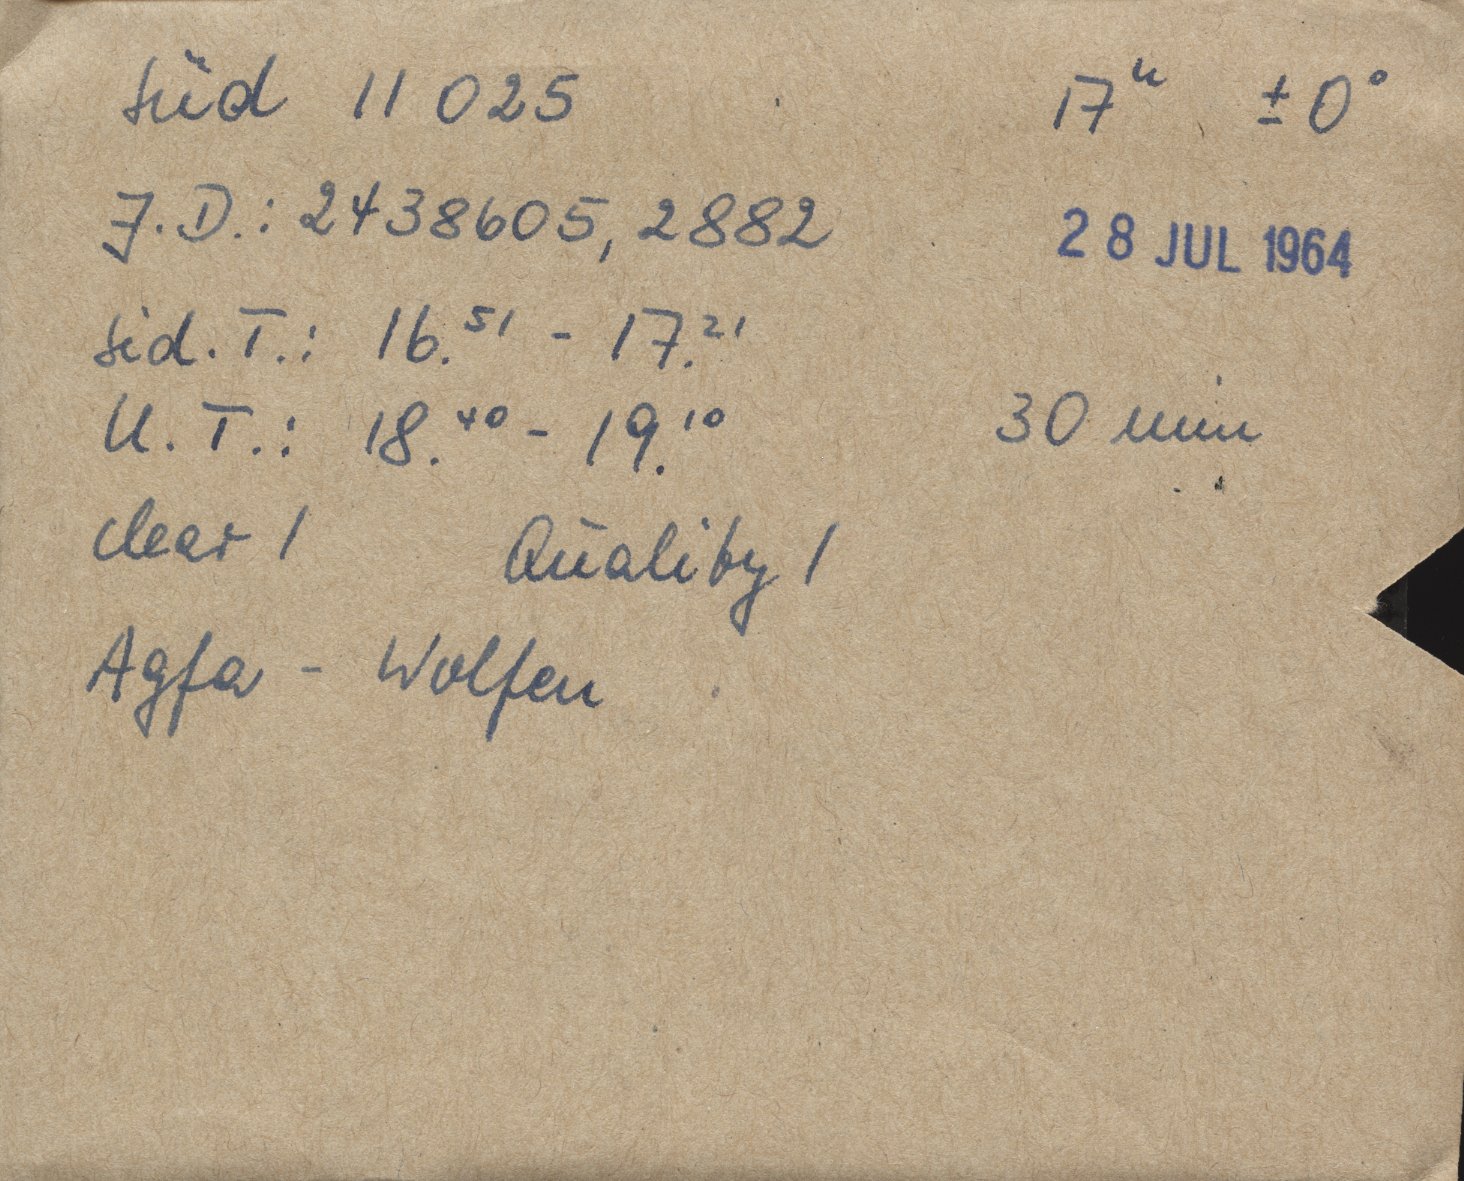 Süd 11 025 17ʰ ±0°
J.D.: 2438605,2882 28 JUL 1964
Sid.T.: 16.⁵¹ - 17.²¹
U.T.: 18.⁴⁰ - 19.¹⁰ 30 min
clear 1 Quality 1
Agfa - Wolfen